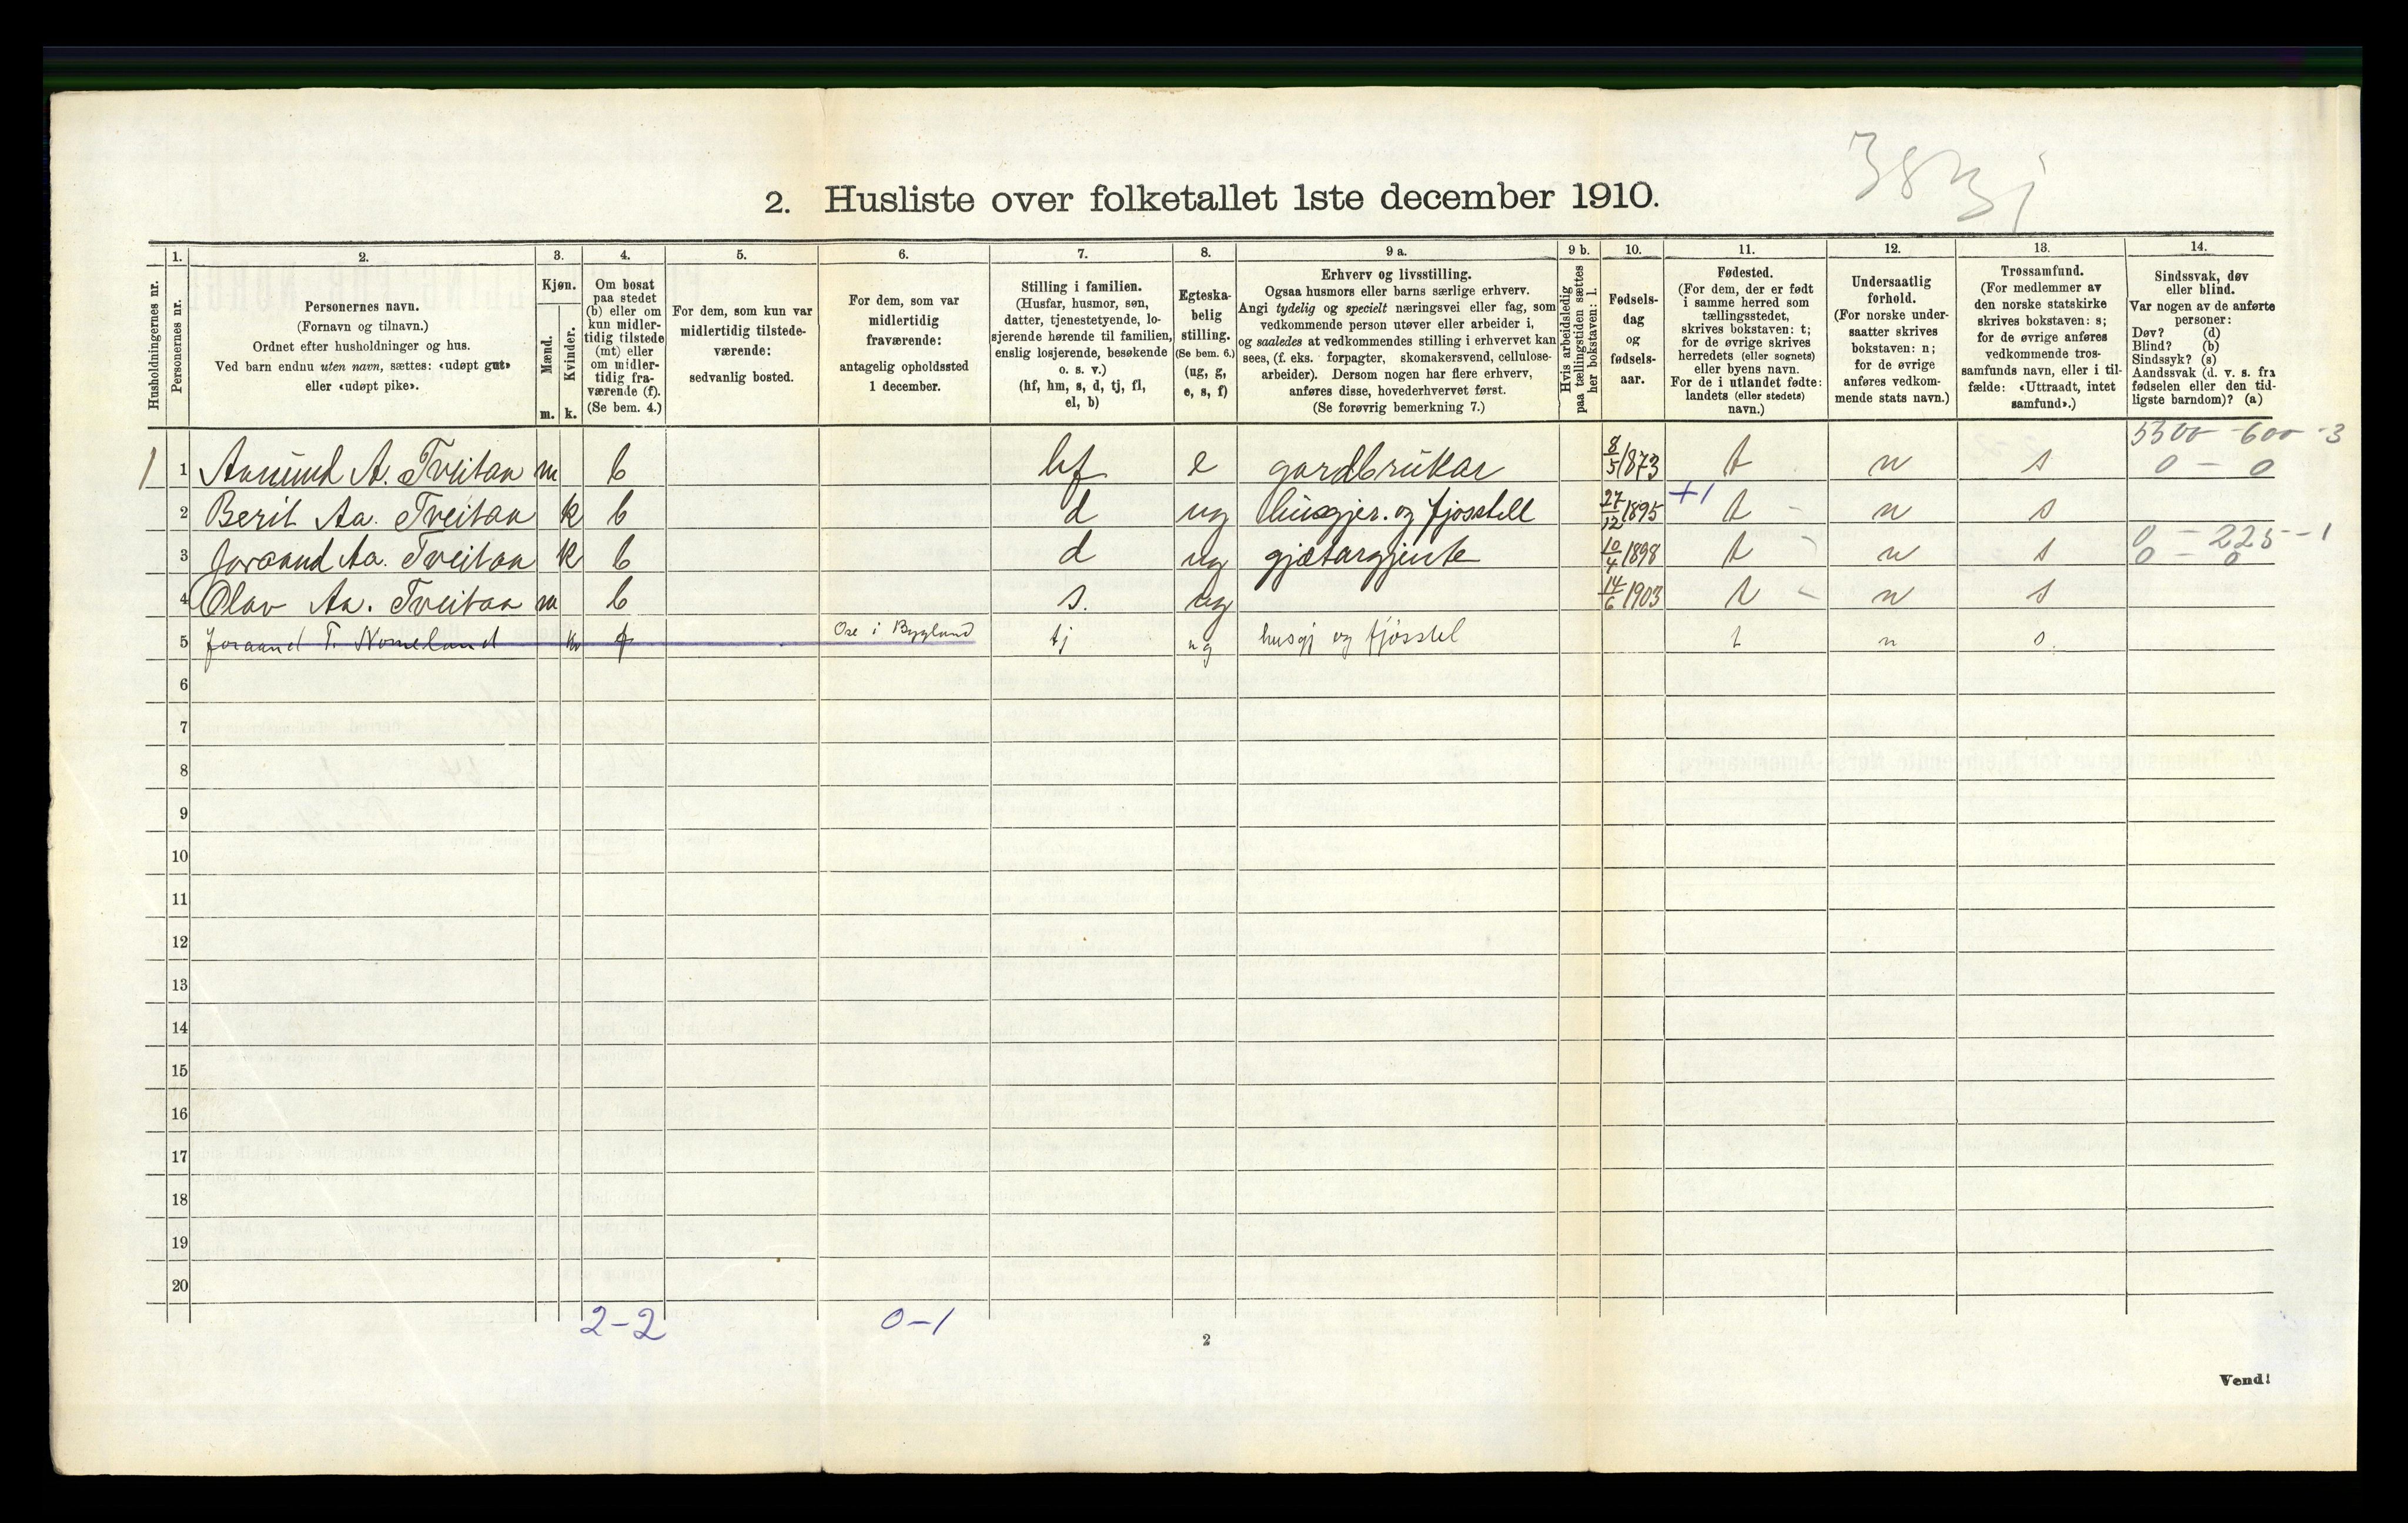 2. Husliste over folketallet 1ste december 1910.
Husholdningernes nr.
1.
Personernes nr.
2.
Personernes navn.
(Fornavn og tilnavn.)
Ordnet efter husholdninger og hus.
Ved barn endnu uten navn, sættes: «udøpt gut»
eller «udøpt pike».
3.
Kjøn.
Mænd.
m.
Kvinder.
k.
4.
Om bosat
paa stedet
(b) eller om
kun midler-
tidig tilstede
(mt) eller
om midler-
tidig fra-
værende (f).
(Se bem. 4.)
5.
For dem, som kun var
midlertidig tilstede-
værende:
sedvanlig bosted.
6.
For dem, som var
midlertidig
fraværende:
antagelig opholdssted
1 december.
7.
Stilling i familien.
(Husfar, husmor, søn,
datter, tjenestetyende, lo-
sjerende hørende til familien,
enslig losjerende, besøkende
o. s. v.)
(hf, hm, s, d, tj, fl,
el, b)
8.
Egteska-
belig
stilling.
(Se bem. 6.)
(ug, g,
e, s, f)
9 a.
Erhverv og livsstilling.
Ogsaa husmors eller barns særlige erhverv.
Angi tydelig og specielt næringsvei eller fag, som
vedkommende person utøver eller arbeider i,
og saaledes at vedkommendes stilling i erhvervet kan
sees, (f. eks. forpagter, skomakersvend, cellulose-
arbeider). Dersom nogen har flere erhverv,
anføres disse, hovederhvervet først.
(Se forøvrig bemerkning 7.)
9 b.
Hvis arbeidsledig
paa tællingstiden sættes
her bokstaven: l.
10.
Fødsels-
dag
og
fødsels-
aar.
11.
Fødested.
(For dem, der er født
i samme herred som
tællingsstedet,
skrives bokstaven: t;
for de øvrige skrives
herredets (eller sognets)
eller byens navn.
For de i utlandet fødte:
landets (eller stedets)
navn.)
12.
Undersaatlig
forhold.
(For norske under-
saatter skrives
bokstaven: n;
for de øvrige
anføres vedkom-
mende stats navn.)
13.
Trossamfund.
(For medlemmer av
den norske statskirke
skrives bokstaven: s;
for de øvrige anføres
vedkommende tros-
samfunds navn, eller i til-
fælde: «Uttraadt, intet
samfund».)
14.
Sindssvak, døv
eller blind.
Var nogen av de anførte
personer:
Døv? (d)
Blind? (b)
Sindssyk? (s)
Aandssvak (d. v. s. fra
fødselen eller den tid-
ligste barndom)? (a)
5300 - 600 - 3
1 1 Aamund A. Tveitan m b hf e gardbrukar 8/5 1873 t n s 0 - 0
2 Berit Aa. Tveitan k b d ug husgjer. og fjosstell 27/12 1895 +1 t - n s
0 - 225 - 1
3 Joraand Aa. Tveitan k b d ug gjætargjente 10/4 1898 t - n s 0 - 0
4 Olav Aa. Tveitan m b s. ug 14/6 1903 t - n s
5 Joraand T. Nomeland k f Ose i Bygland tj ug husgj og fjosstel t n s.
6
7
8
9
10
11
12
13
14
15
16
17
18
19
20
2-2 0-1
2
Vend!